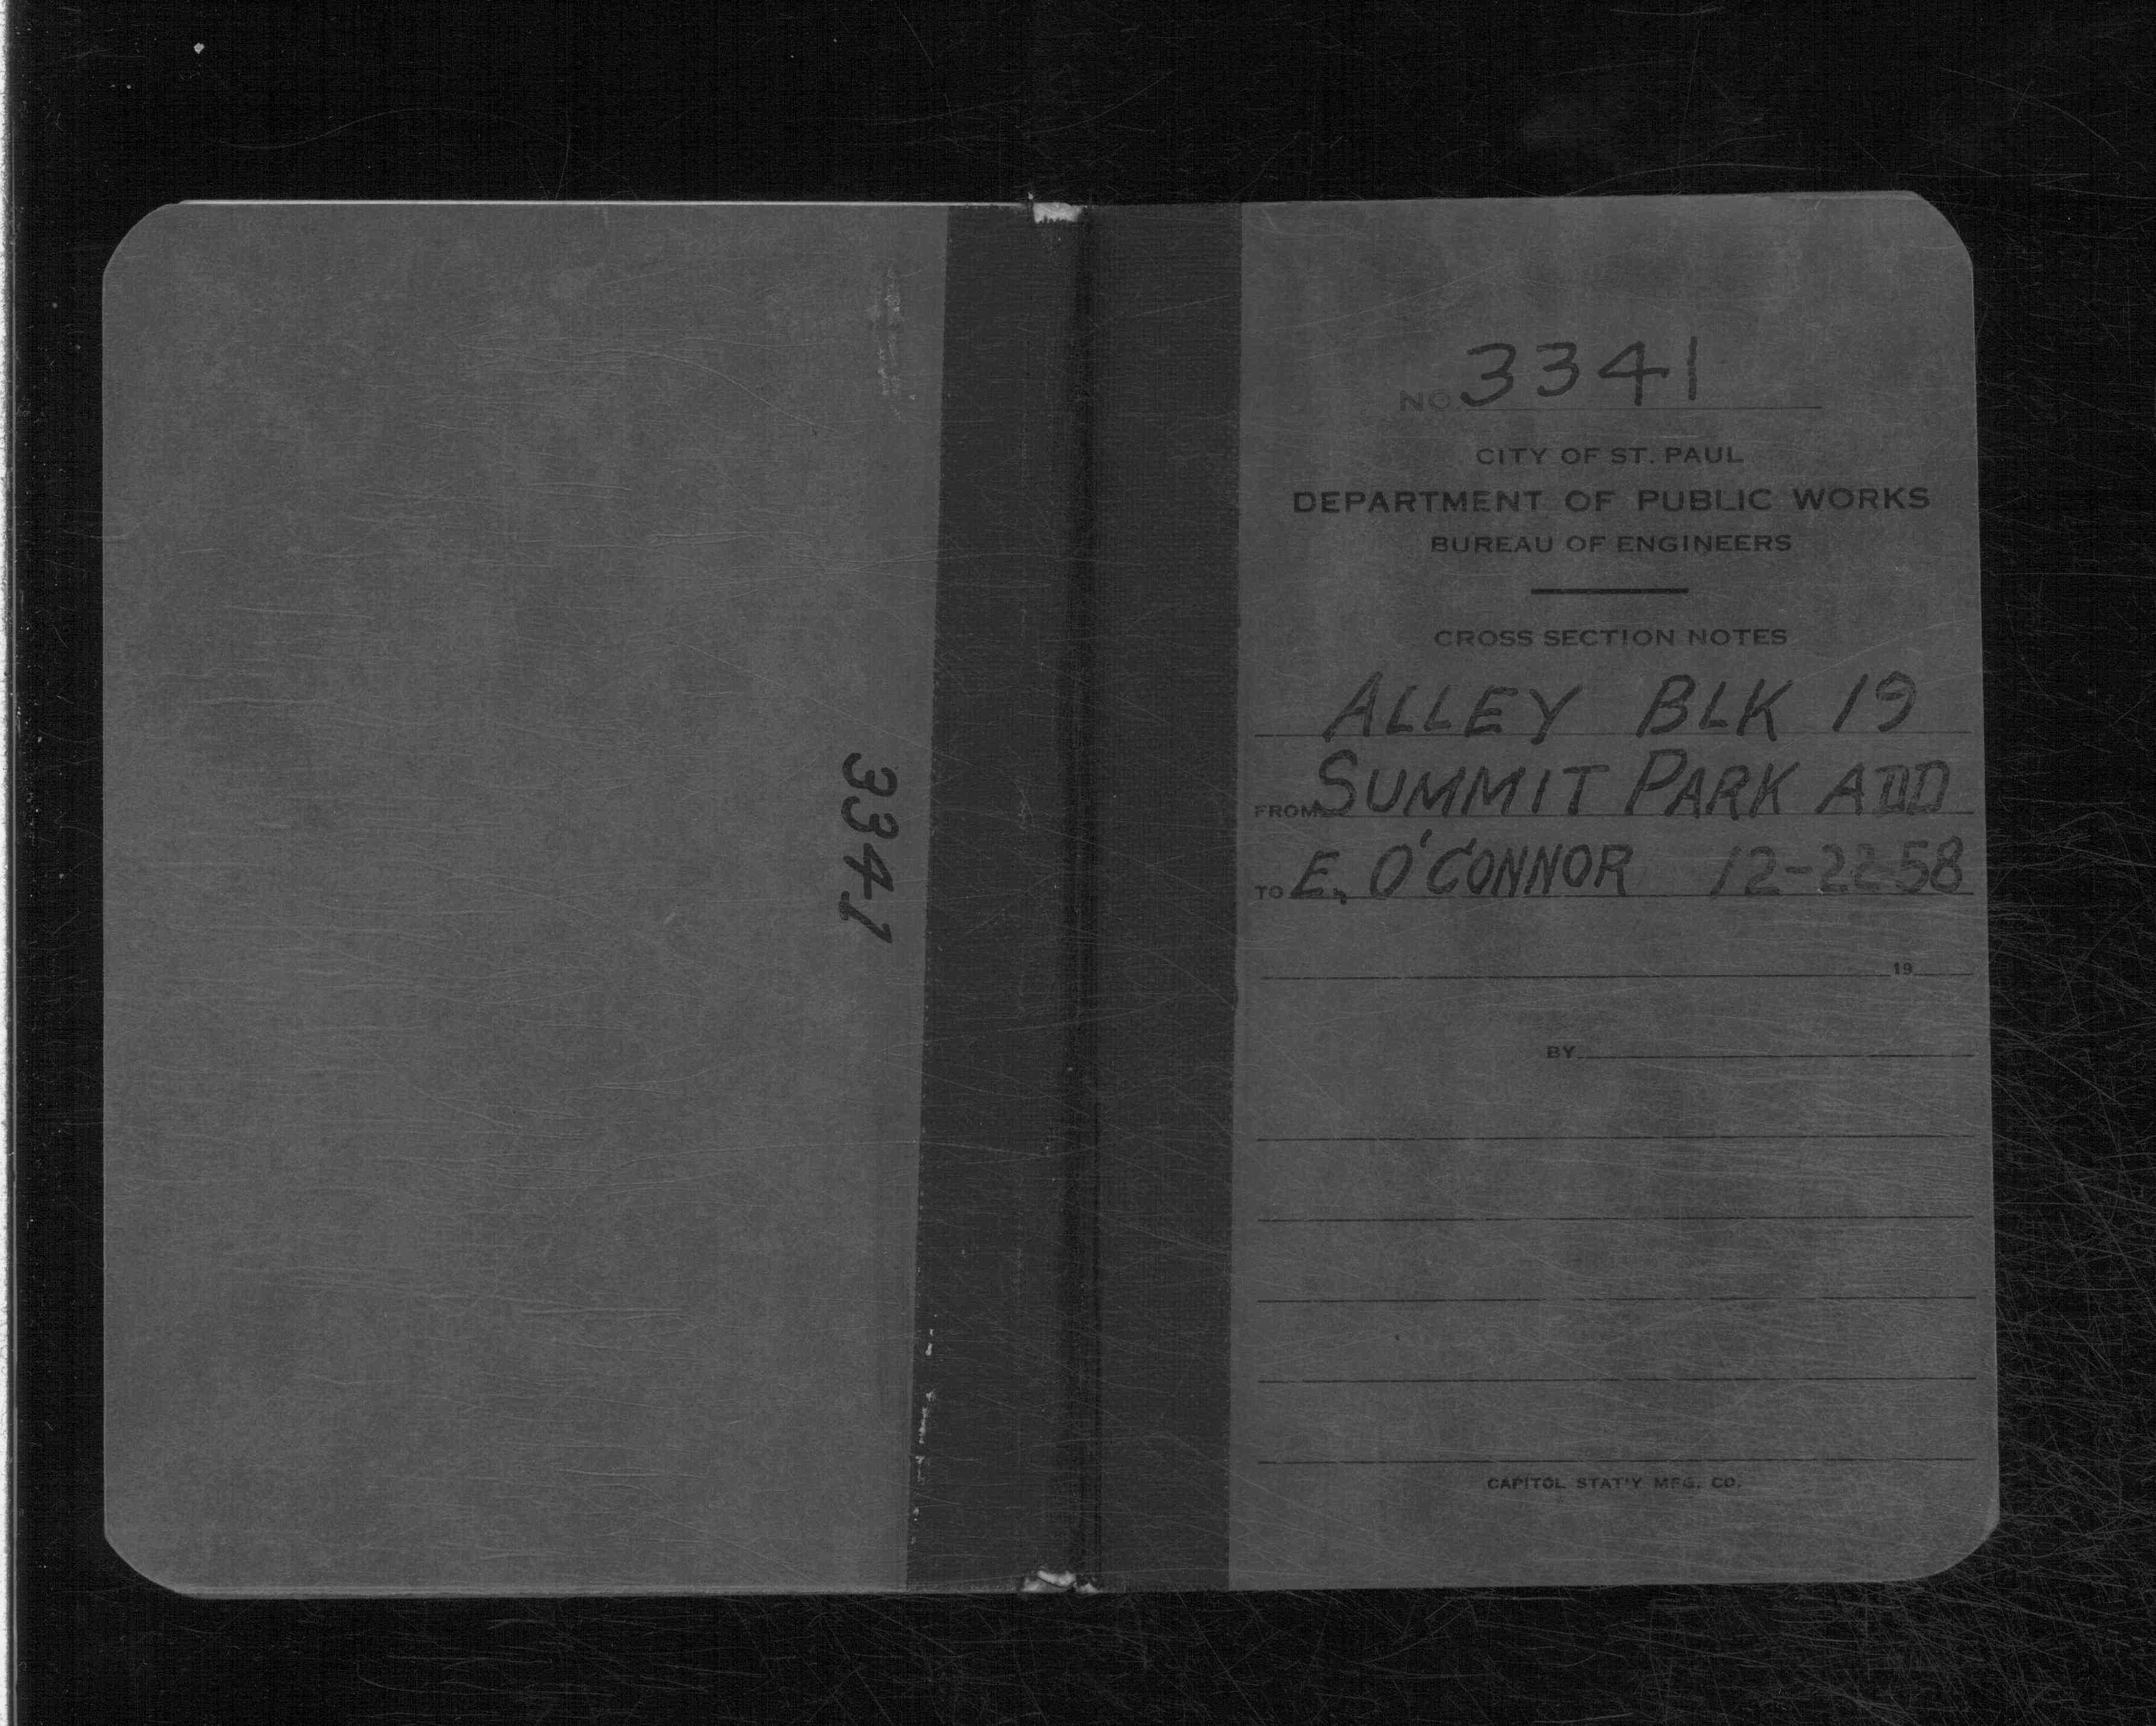 3341
NO. 3341
CITY OF ST. PAUL
DEPARTMENT OF PUBLIC WORKS
BUREAU OF ENGINEERS
CROSS SECTION NOTES
ALLEY BLK 19
FROM SUMMIT PARK ADD
TO E. O'CONNOR 12-22-58
19
BY
CAPITOL STAT'Y MFG. CO.